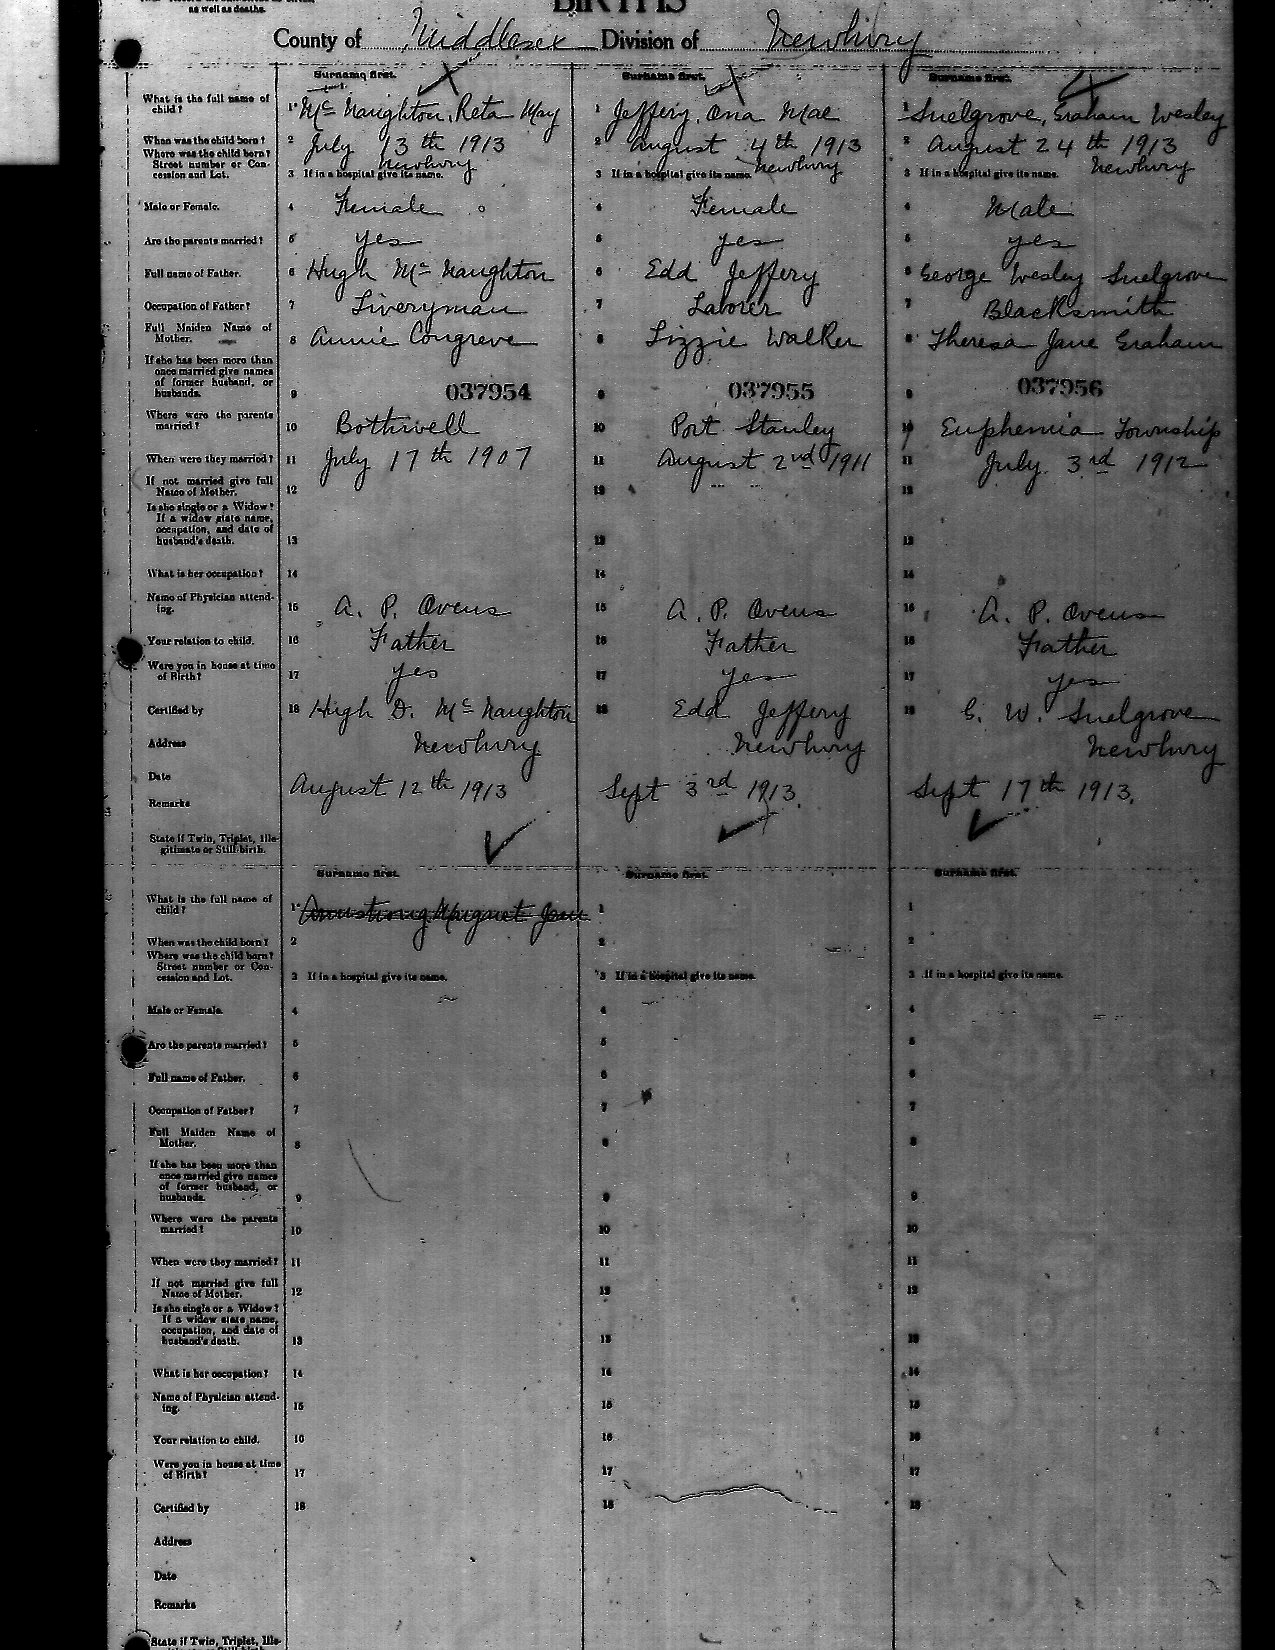 as well as deaths.
BIRTHS
County of Middlesex Division of Newbury
Surname first. Surname first. Surname first.
What is the full name of child? 1 McNaughton, Reta May 1 Jeffery, Ona Mae 1 Snelgrove, Graham Wesley
When was the child born? 2 July 13th 1913 2 August 4th 1913 2 August 24th 1913
Where was the child born? Street number or Concession and Lot. 3 If in a hospital give its name. Newbury 3 If in a hospital give its name. Newbury 3 If in a hospital give its name. Newbury
Male or Female. 4 Female 4 Female 4 Male
Are the parents married? 5 yes 5 yes 5 yes
Full name of Father. 6 Hugh McNaughton 6 Edd Jeffery 6 George Wesley Snelgrove
Occupation of Father? 7 Liveryman 7 Laborer 7 Blacksmith
Full Maiden Name of Mother. 8 Annie Congreve 8 Lizzie Walker 8 Theresa Jane Graham
If she has been more than once married give names of former husband, or husbands. 9 037954 9 037955 9 037956
Where were the parents married? 10 Bothwell 10 Port Stanley 10 Euphemia Township
When were they married? 11 July 17th 1907 11 August 2nd 1911 11 July 3rd 1912
If not married give full Name of Mother. 12 12 12
Is she single or a Widow? If a widow state name, occupation, and date of husband's death. 13 13 13
What is her occupation? 14 14 14
Name of Physician attending. 15 A. P. Owens 15 A. P. Owens 15 A. P. Owens
Your relation to child. 16 Father 16 Father 16 Father
Were you in house at time of Birth? 17 yes 17 yes 17 yes
Certified by 18 Hugh D. McNaughton 18 Edd Jeffery 18 G. W. Snelgrove
Address Newbury Newbury Newbury
Date August 12th 1913 Sept 3rd 1913 Sept 17th 1913.
Remarks
State if Twin, Triplet, Illegitimate or Still-birth.
Surname first. Surname first. Surname first.
What is the full name of child? 1 Armstrong, Margaret Jean 1 1
When was the child born? 2 2 2
Where was the child born? Street number or Concession and Lot. 3 If in a hospital give its name. 3 If in a hospital give its name. 3 If in a hospital give its name.
Male or Female. 4 4 4
Are the parents married? 5 5 5
Full name of Father. 6 6 6
Occupation of Father? 7 7 7
Full Maiden Name of Mother. 8 8 8
If she has been more than once married give names of former husband, or husbands. 9 9 9
Where were the parents married? 10 10 10
When were they married? 11 11 11
If not married give full Name of Mother. 12 12 12
Is she single or a Widow? If a widow state name, occupation, and date of husband's death. 13 13 13
What is her occupation? 14 14 14
Name of Physician attending. 15 15 15
Your relation to child. 16 16 16
Were you in house at time of Birth? 17 17 17
Certified by 18 18 18
Address
Date
Remarks
State if Twin, Triplet, Ille-